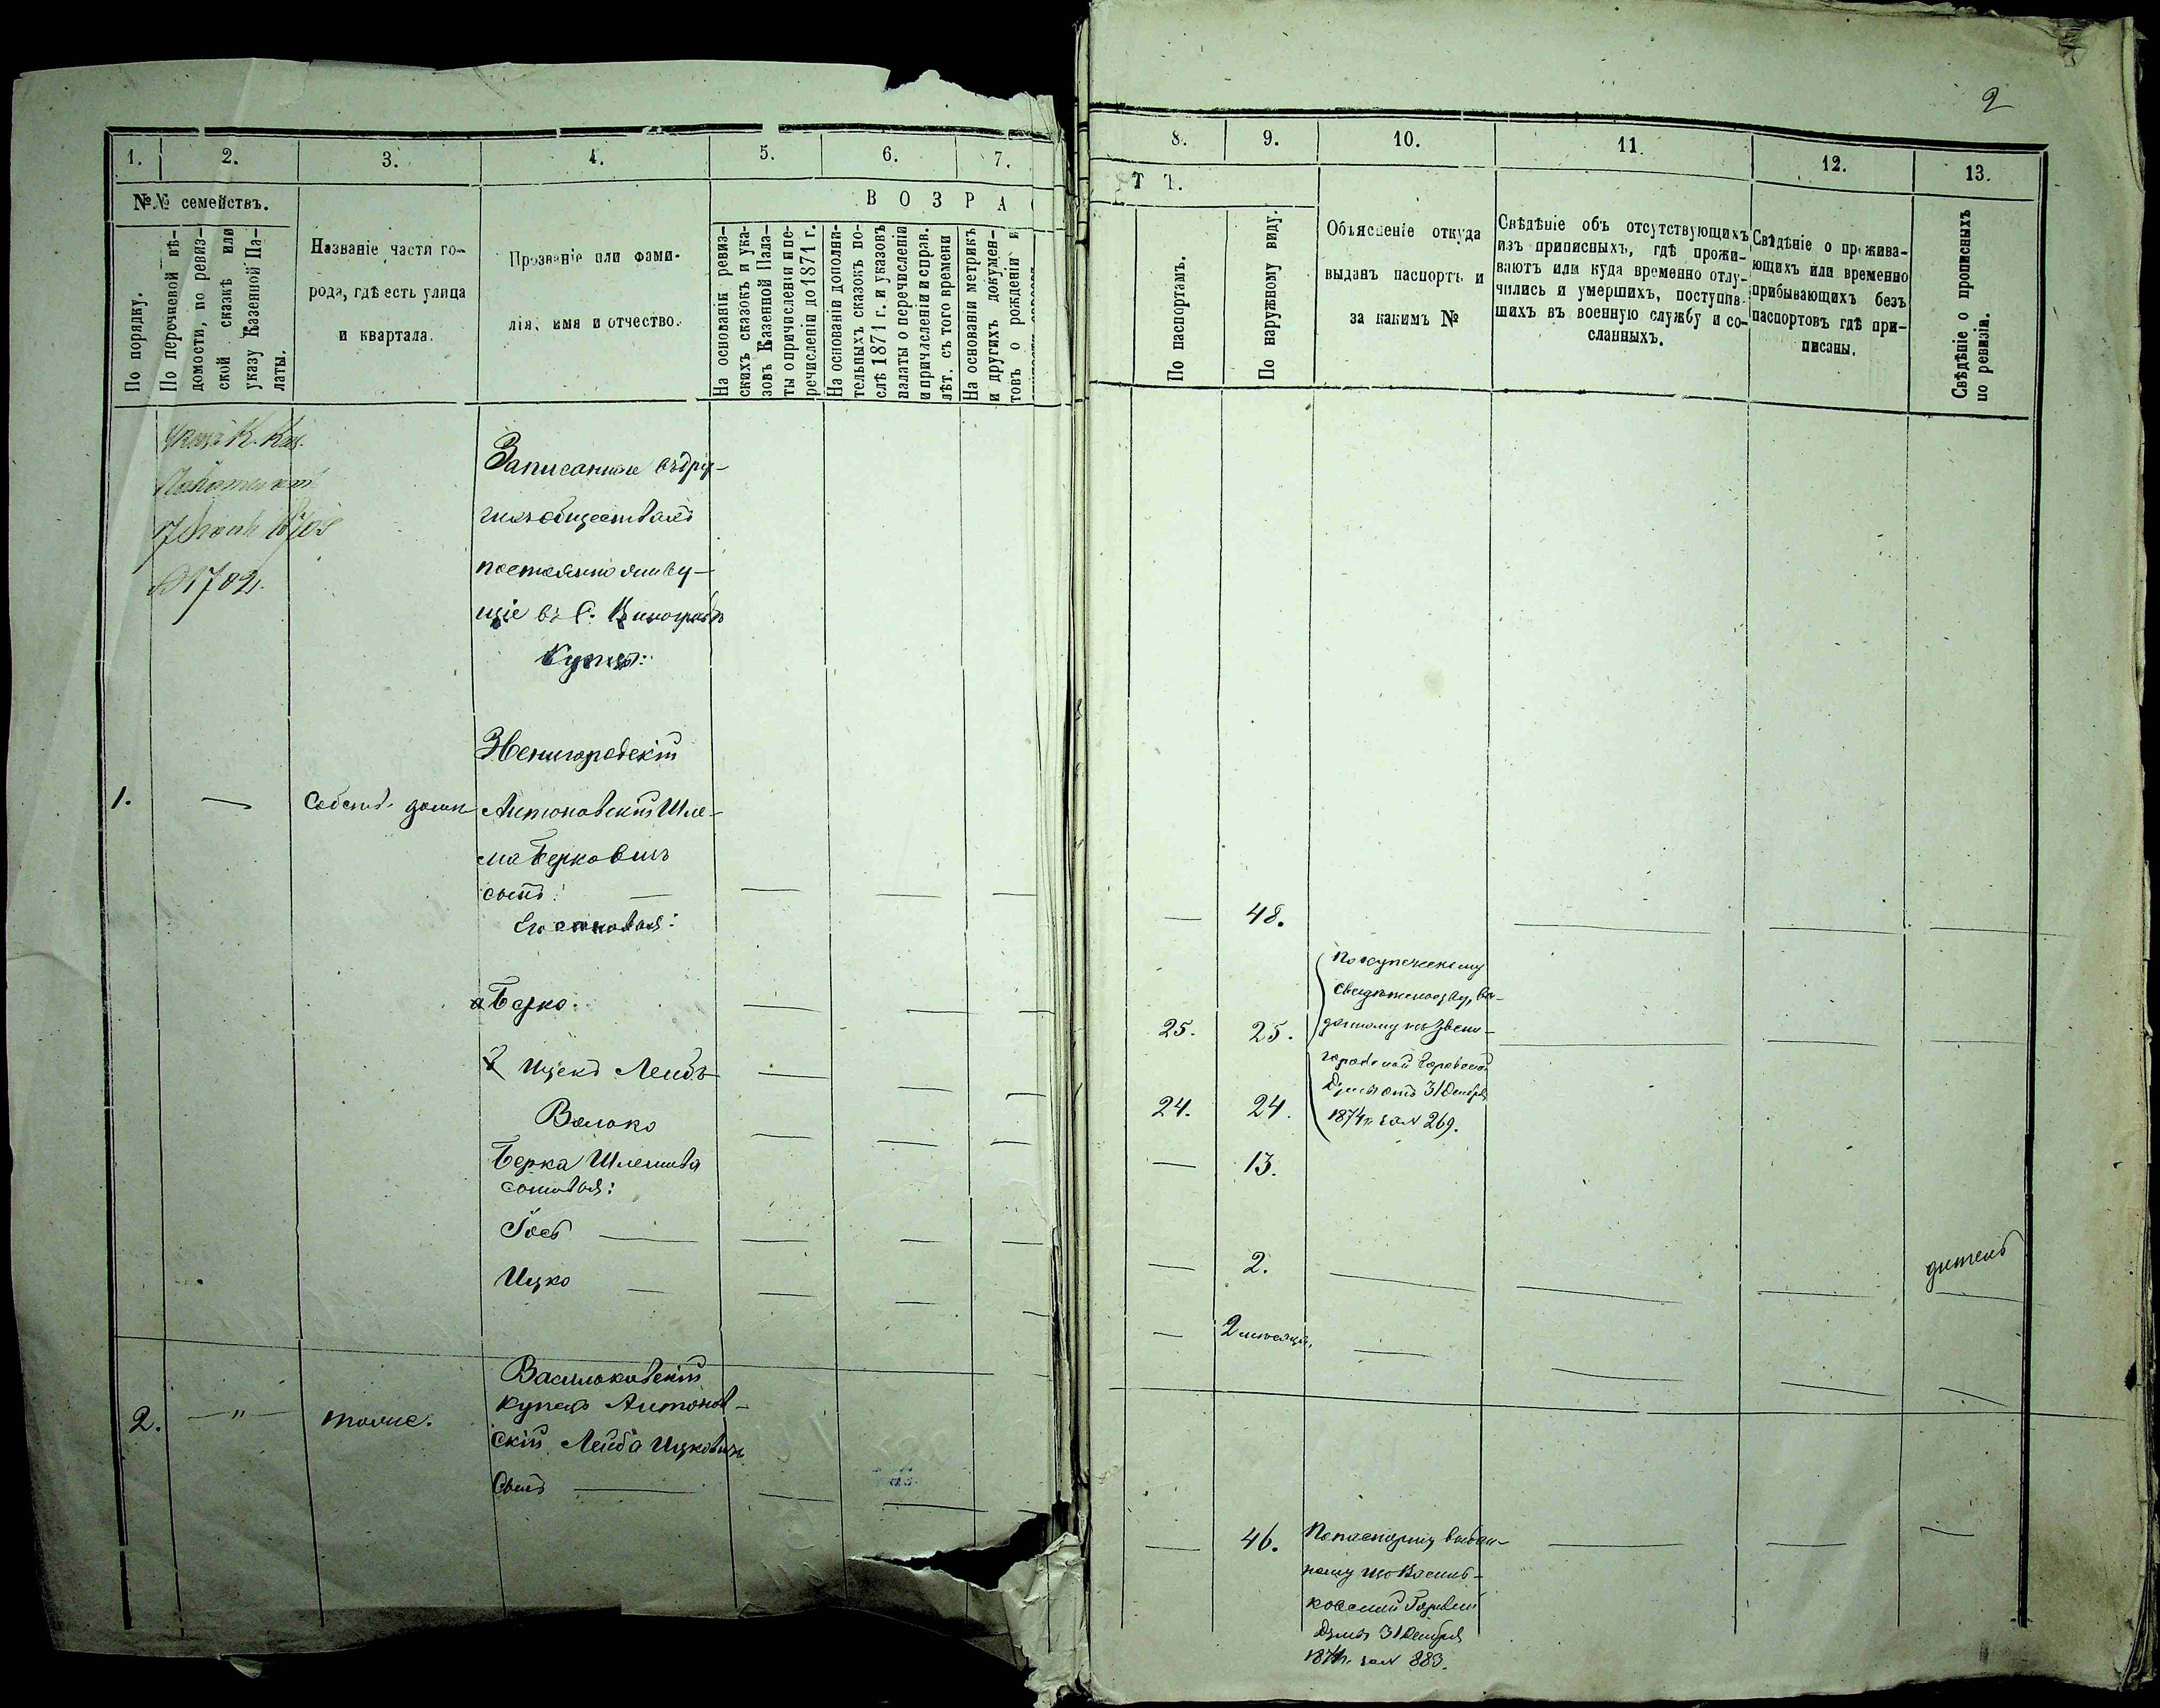 2
1.
2.
3.
4.
5.
6.
7.
№№ семействъ.
По порядку.
По перечневой вѣ-
домости, по ревиз-
ской сказкѣ или
указу Казенной Па-
латы.
Названіе части го-
рода, гдѣ есть улица
и квартала.
Прозваніе или фами-
лія, имя и отчество.
ВОЗРА
На основаніи ревиз-
скихъ сказокъ и ука-
зовъ Казенной Пала-
ты о причисленіи и пе-
речисленіи до 1871 г.
На основаніи дополни-
тельныхъ сказокъ по-
слѣ 1871 г. и указовъ
палаты о перечисленіи
и причисленіи и справ.
лѣт. съ того времени
На основаніи метрикъ
и другихъ докумен-
товъ о рожденіи и
Записанные въ дру-
гихъ обществахъ
постоянно живу-
щіе въ С. Виноградѣ
Купцы:
Звенигородскій
1.
—
Собств. домъ
Антоновскій Шле-
ма Берковичъ
сынъ: —
Его сыновья:
Берко.
2 Ицекъ Лейбъ
Волько
Берка Шлемова
сыновья:
Іосъ —
Ицко —
2.
— " —
тоже.
Васильковскій
купецъ Антонов-
скій Лейба Ицковичъ
Сынъ —
8.
9.
10.
11.
12.
13.
Т Т.
По паспортамъ.
По наружному виду.
Объясненіе откуда
выданъ паспортъ и
за какимъ №
Свѣдѣніе объ отсутствующихъ
изъ приписныхъ, гдѣ прожи-
ваютъ или куда временно отлу-
чились и умершихъ, поступив-
шихъ въ военную службу и со-
сланныхъ.
Свѣдѣніе о прожива-
ющихъ или временно
прибывающихъ безъ
паспортовъ гдѣ при-
писаны.
Свѣдѣніе о прописныхъ
по ревизіи.
— 48.
По купеческому
свидѣтельству, вы-
данному изъ Звени-
городской Городской
Думы отъ 31 Декабря
1874 г. за № 269.
25. 25.
24. 24.
— 13.
— 2.
— 2 мѣсяца.
— 46.
По паспорту выдан-
ному изъ Василь-
ковской Городской
Думы 31 Декабря
1874 г. за № 883.